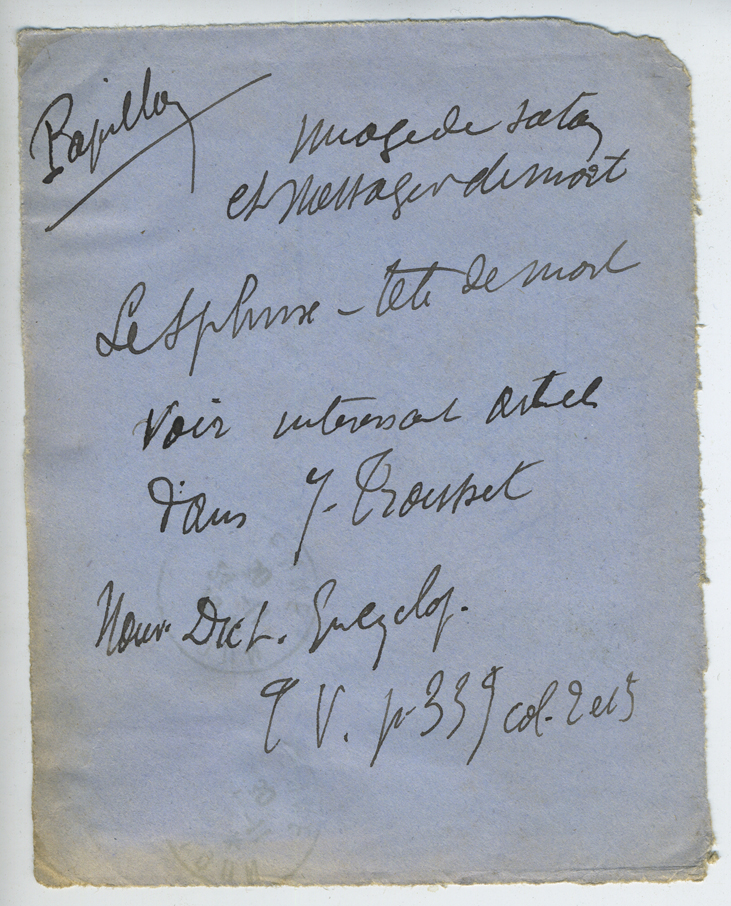 Papillon
Image de Satan
et Messager de mort
Le Sphinx - tête de mort
Voir intéressant article
dans J. Trousset
Nouv. Dict. Encyclop.
T V. p. 339 col. 2 et 3